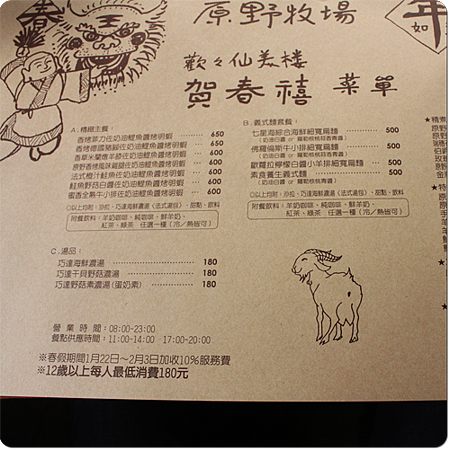 春王
原野牧場
年
如
歡々仙美樓
賀春禧 菜單
A.精緻主餐:
香烤菲力佐奶油鯷魚醬烤明蝦 ··· 650
香烤德國豬腳佐奶油鯷魚醬烤明蝦 ··· 650
香草米蘭燉羊膝佐奶油鯷魚醬烤明蝦 ··· 650
原野香烤風味雞腿佐奶油鯷魚醬烤明蝦 ··· 600
法式橙汁鮭魚佐奶油鯷魚醬烤明蝦 ··· 600
鮭魚野菇白醬佐奶油鯷魚醬烤明蝦 ··· 600
蜜香全熟牛小排佐奶油鯷魚醬烤明蝦 ··· 600
◎以上均附：沙拉、巧達海鮮濃湯（法式湯包）、甜點、飲料
附餐飲料：羊奶咖啡、純咖啡、鮮羊奶、
紅茶、綠茶 任選一種（冷／熱皆可）
B.義式麵套餐:
七星海綜合海鮮細寬扁麵 500
佛羅倫斯牛小排細寬扁麵 500
歐蘿拉檸檬白醬小羊排細寬扁麵 ··· 500
素食養生義式麵 500
◎以上均附：沙拉、巧達海鮮濃湯（法式湯包）、甜點、飲料
附餐飲料：羊奶咖啡、純咖啡、鮮羊奶、
紅茶、綠茶 任選一種（冷／熱皆可）
C.湯品:
巧達海鮮濃湯 180
巧達干貝野菇濃湯 180
巧達野菇素濃湯(蛋奶素) 180
營業時間：08:00-23:00
餐點供應時間：11:00-14:00 17:00-20:00
※春假期間1月22日～2月3日加收10%服務費
※12歲以上每人最低消費180元